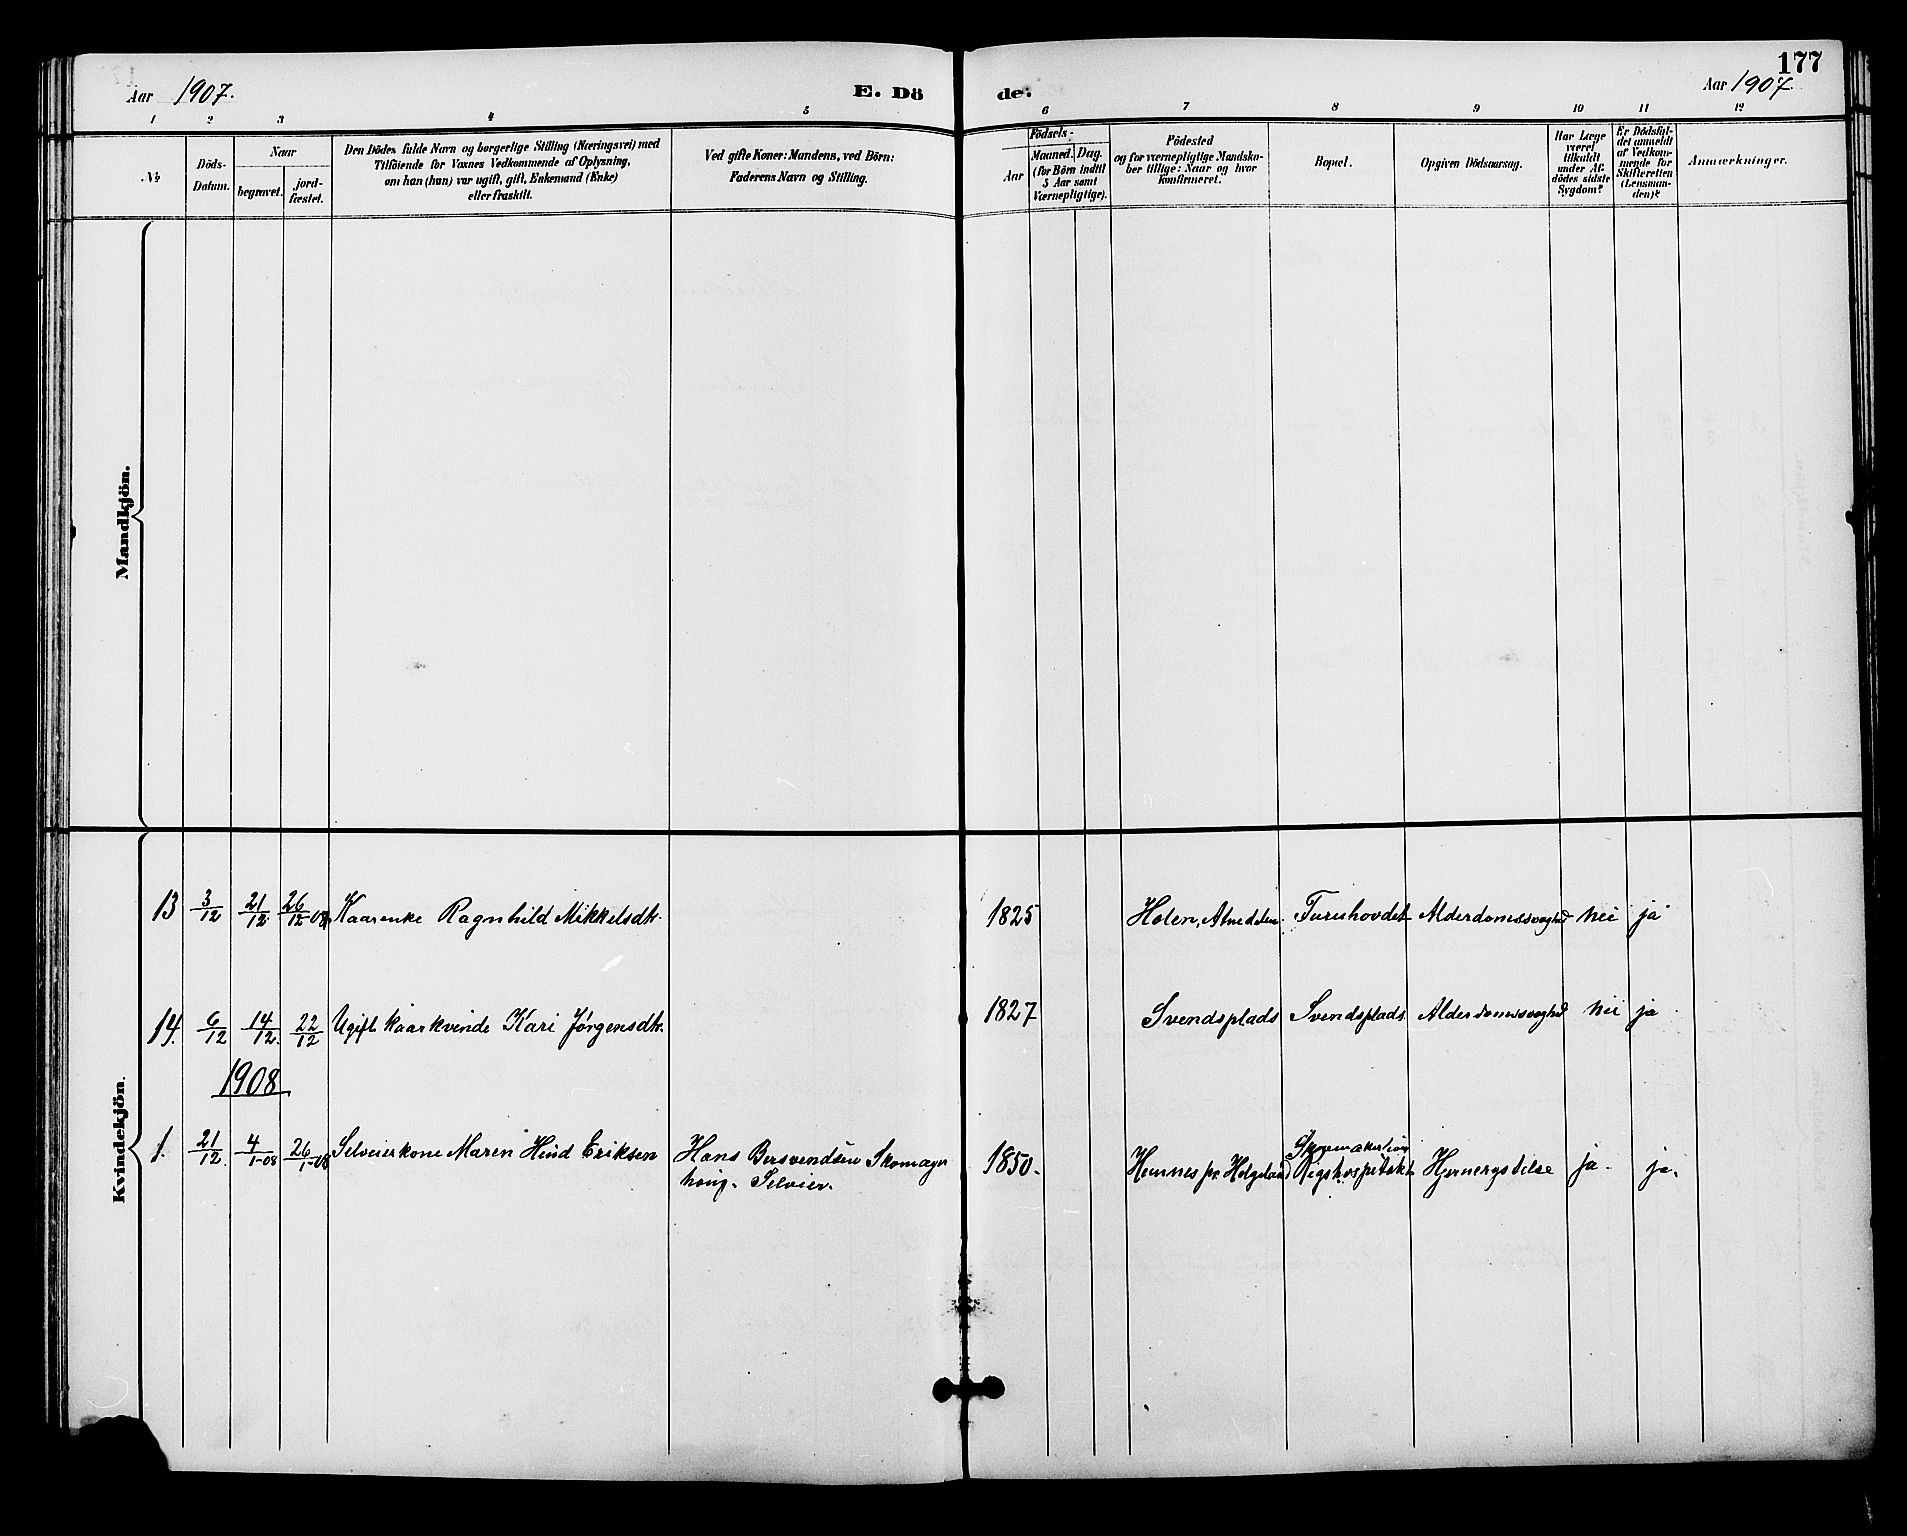 177
Aar 1907.
E. Dö
de:
Aar 1907.
1 2 3 4 5 6 7 8 9 10 11 12
№
Döds-
Datum.
Naar
begravet.
jord-
fæstet.
Den Dödes fulde Navn og borgerlige Stilling (Næringsvei) med
Tilföiende for Voxnes Vedkommende af Oplysning,
om han (hun) var ugift, gift, Enkemand (Enke)
eller fraskilt.
Ved gifte Koner: Mandens, ved Börn:
Faderens Navn og Stilling.
Födsels-
Aar
Maaned. Dag.
(for Börn indtil
5 Aar samt
Værnepligtige).
Födested
og for værnepligtige Mandska-
ber tillige: Naar og hvor
konfirmeret.
Bopæl.
Opgiven Dödsaarsag.
Har Læge
været
tilkaldt
under Af-
dödes sidste
Sygdom?
Er Dödsfal-
det anmeldt
af Vedkom-
mende for
Skifteretten
(Lensman-
den)?
Anmærkninger.
Mandkjön.
Kvindekjön.
13 3/12 21/12 26/12 08 Kaarenke Ragnhild Mikkelsdtr. 1825 Holen, Turuhovdet Alderdomssvaghed nei ja
14. 6/12 14/12. 22/12 Ugift kaarkvinde Kari Jørgensdtr. 1827 Svendsplads Svendsplads Alderdomssvaghed nei ja
1908
1. 21/12. 4/1-08 26/1-08 Selveierkone Maren Hind Eriksen Hans Bersvendsen Skomager
haug. Selveier.
1850. Hemnes pr. Helgeland Rigshospitalet Hjernerystelse ja. ja.